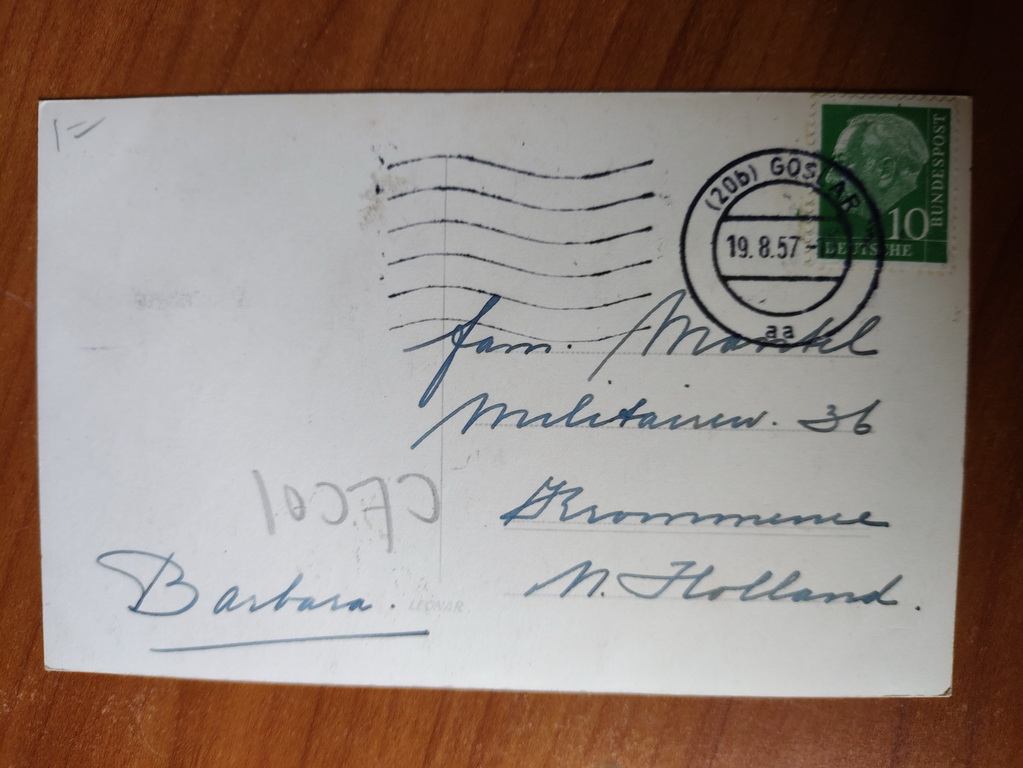 1=
(20b) GOSLAR
19.8.57-
aa
10
DEUTSCHE
BUNDESPOST
fam.
36
Krommenie
N. Holland.
Barbara.
LEONAR